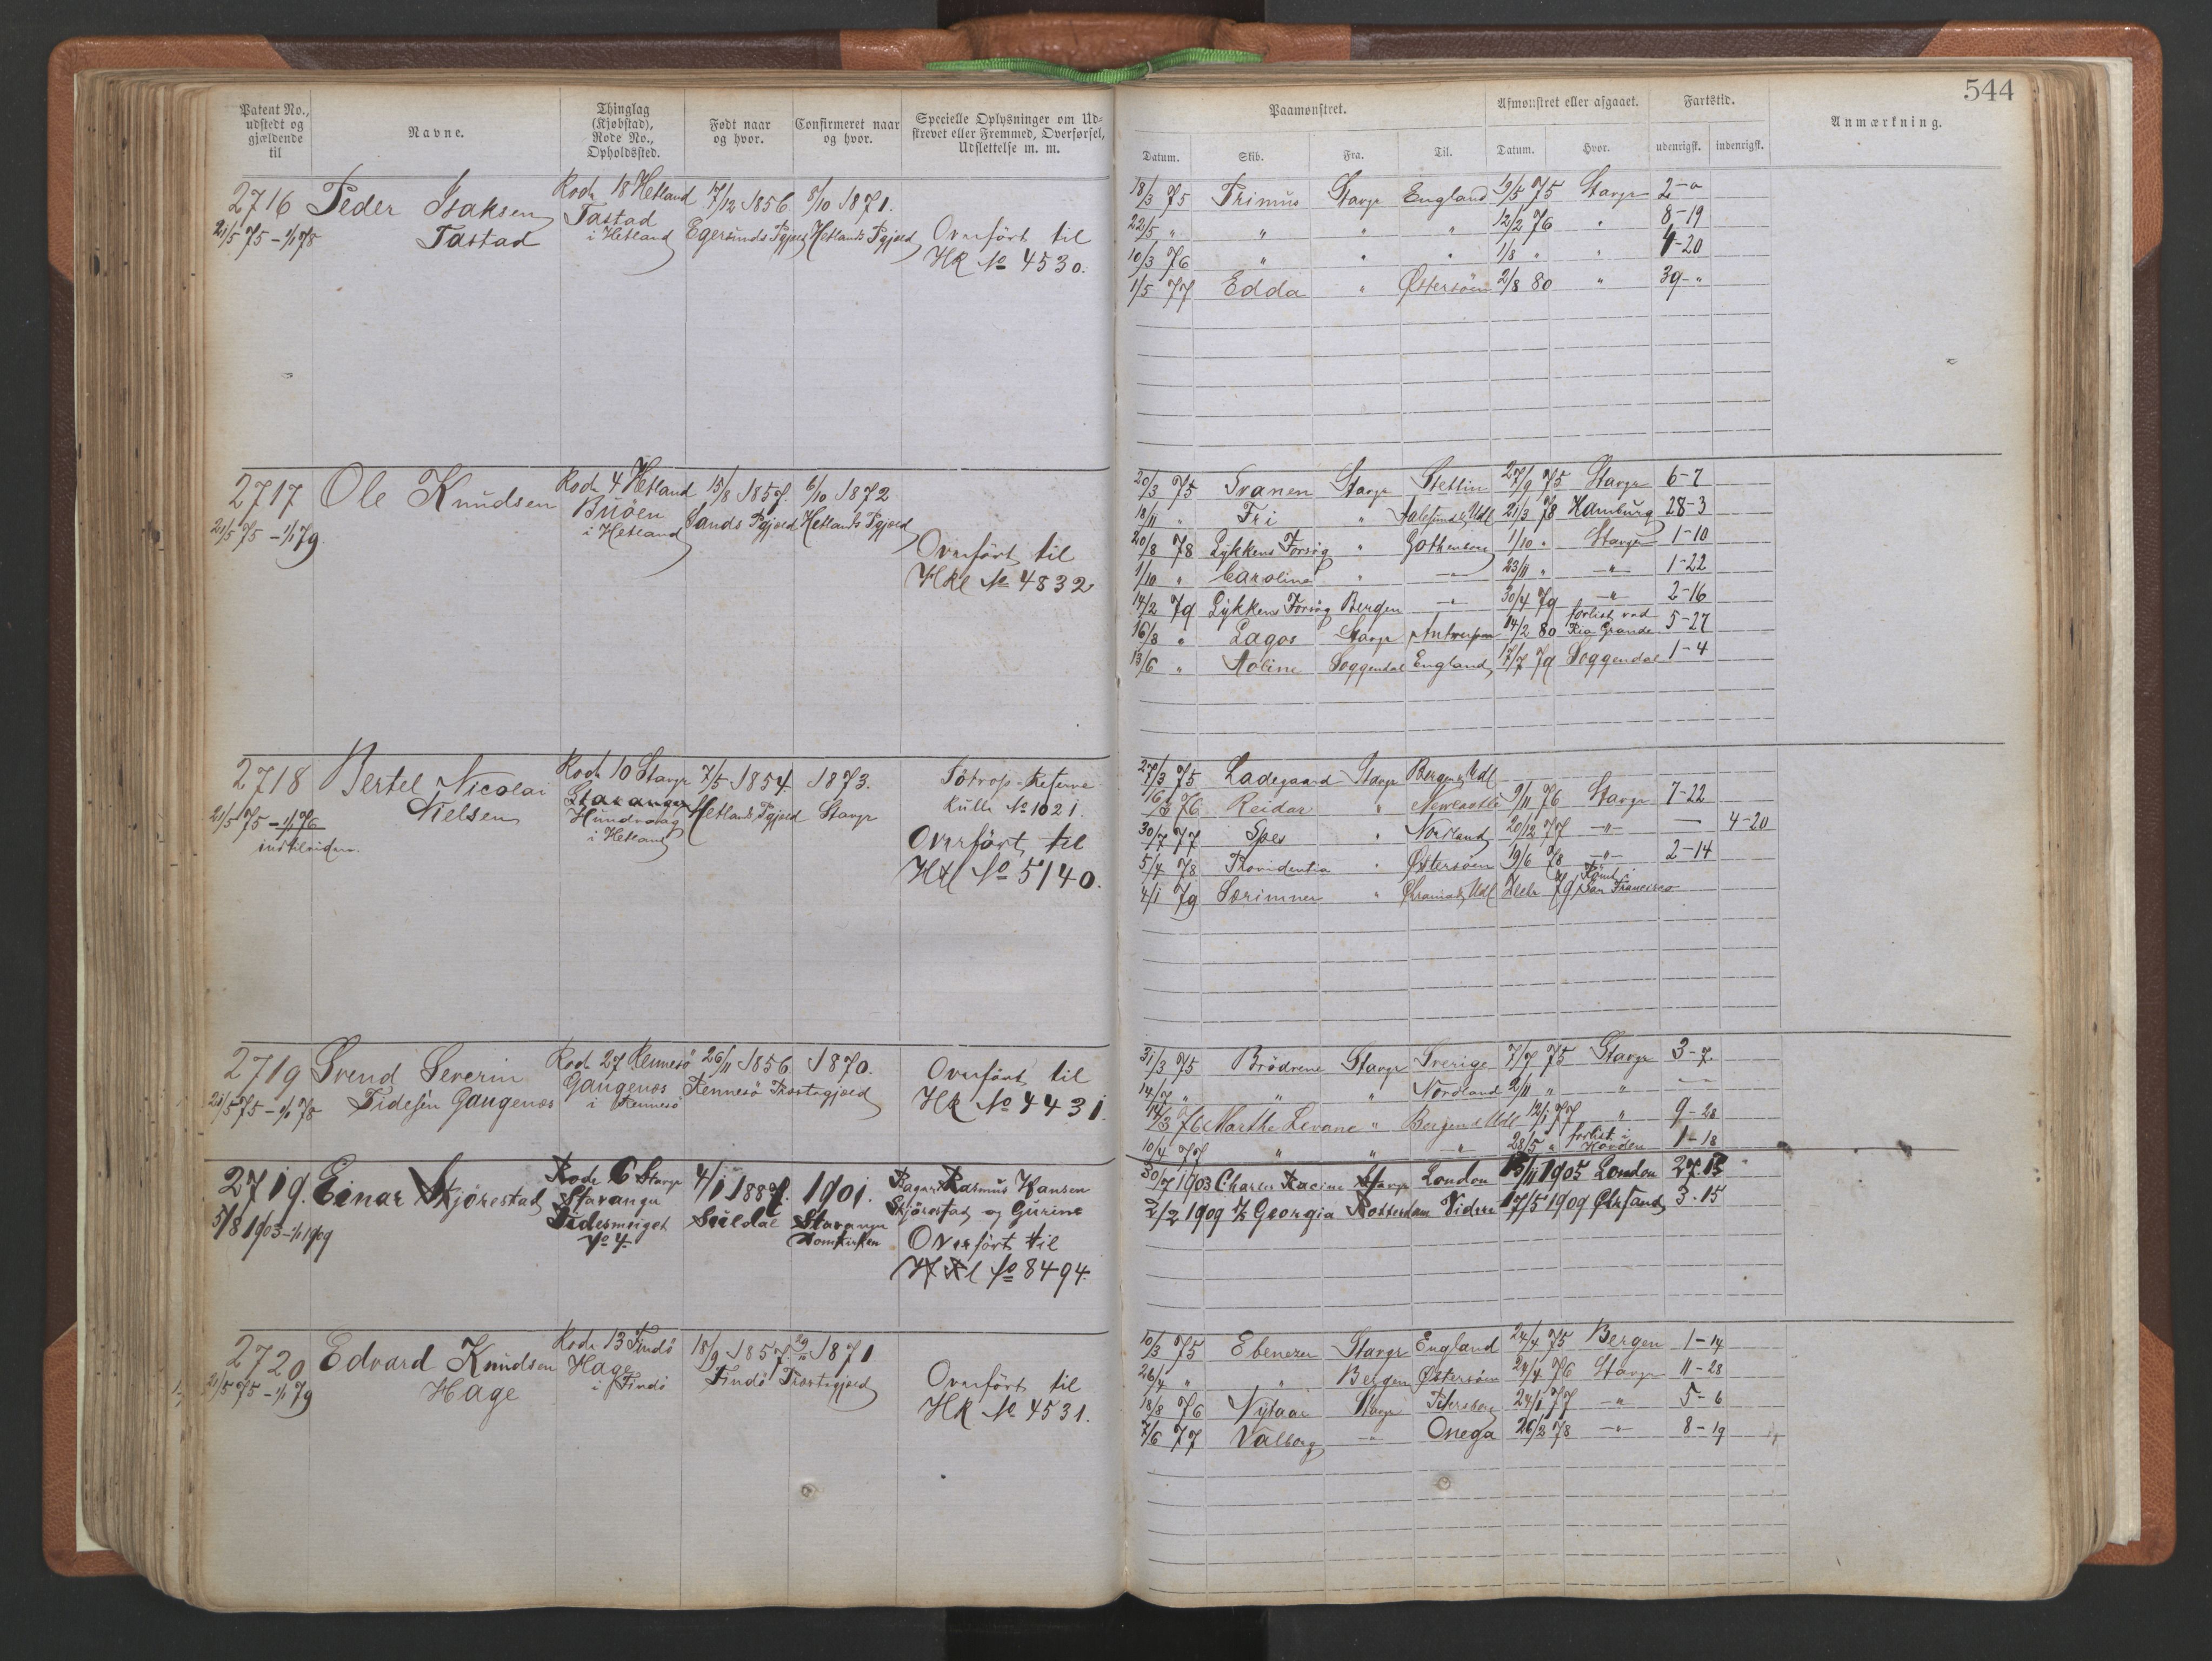 544
Patent No., udstedt og gjældende til
Navne.
Thinglag (Kjøbstad), Rode No., Opholdssted.
Født naar og hvor.
Confirmeret naar og hvor.
Specielle Oplysninger om Udskrevet eller Fremmed, Overførsel, Udslettelse m. m.
Paamønstret.
Afmønstret eller afgaaet.
Fartstid.
Anmærkning.
Datum. Skib. Fra. Til. Datum. Hvor. udenrigsk. indenrigsk.
2716 Peder Isaksen Rode 18 Hetland 17/12 1856 8/10 1871.
21/5 75 – 1/1 78 Tastad Tastad i Hetland Egersunds Pgjeld Hetlands Pgjeld Overført til
HR No 4530.
18/3 75 Primus Stavgr England 19/5 75 Stavgr 2 – "
22/5 " " " " 12/2 76 " 8-19
10/3 76 " " " 1/8 " " 4-20
1/5 77 Edda " Østersöen 2/8 80 " 39 - "
2717 Ole Knudsen Rode 4 Hetland 15/8 1857. 6/10 1872
21/5 75 – 1/1 79. Buöen i Hetland Sands Pgjeld Hetlands Pgjeld
Overført til
HRl No 4832
20/3 75 Svanen Stavgr Stettin 27/9 75 Stavgr 6-7
18/11 " Fri " Aalesund & Udl 21/3 78 Hamburg 28-3
20/8 78 Lykkens Forsøg " Gothenborg 1/10 " Stavgr 1-10
1/10 " Caroline " — " — 23/11 " — " — 1-22
14/2 79 Lykkens Forsøg Bergen — " — 30/4 79 — " — 2-16
16/8 " Lagos Stavgr Antwerpen 14/2 80 forlist ved Rio Grande 5-27
13/6 " Aoline Soggendal England 17/7 79 Soggendal 1-4
2718 Bertel Nicolai Rode 10 Stavgr 7/5 1854. 1873.
21/5 75 – 1/1 76 Nielsen Stavanger Hundvaag i Hetland Hetlands Pgjeld Stavgr
indtilvidere.
Sötrops-Reserve
Rulle No 1021.
Overført til
HRl No 5140.
27/3 75 Ladegaard Stavgr Bergen & Udl
16/3 76 Reidar " Newcastle 9/11 76 Stavgr 7-22
30/7 77 Spes " Nordland 20/12 77 — " — — 4-20
5/4 78 Providentia " Østersöen 19/6 78 — " — 2-14
4/1 79 Særimner " Udl 79 Rømt i San Francisco
2719 Svend Severin Rode 27 Rennesö 26/11 1856 1870.
21/5 75 – 1/1 78 Fidesen Gaugenæs Gaugenæs i Rennesö Rennesö Præstegjeld
Overført til
HR No 4431.
31/3 75 Brödrene Stavgr Sverige 7/7 75 Stavgr 3-7.
14/7 " " " Nordland 2/11 " " — " —
14/3 76 Marthe Levane " Bergen & Udl 12/1 77 " 9-28
10/4 77 " " — " — 28/5 " forlist i 1-18
2719. Einar Skjörestad Rode 6 Stavgr 4/1 1887. 1901.
5/8 1903 – 1/1 1909 Stavanger No 4. Suldal Stavanger Domkirken
Rasmus Hansen
Skjörestad og Gurine
Overført til
HRl No 8494.
30/7 1903 Charles Racine Stavgr London 13/11 1905 London 27.13
2/2 1909 Georgia Rotterdam Videre 17/5 1909 Chrsand 3.15
2720 Edvard Knudsen Rode 13 Findö 18/9 1857. 29/ 1871
21/5 75 – 1/1 79 Hage Hage i Findö Findö Præstegjeld
Overført til
HR No 4531.
10/3 75 Ebenezer Stavgr England 24/4 75 Bergen 1-14
26/4 " " Bergen Østersöen 24/4 76 Stavgr 11-28
18/8 76 Nylaar Stavgr Petersborg 24/1 77 — " — 5-6
7/6 77 Valborg — " — Onega 26/2 78 — " — 8-19